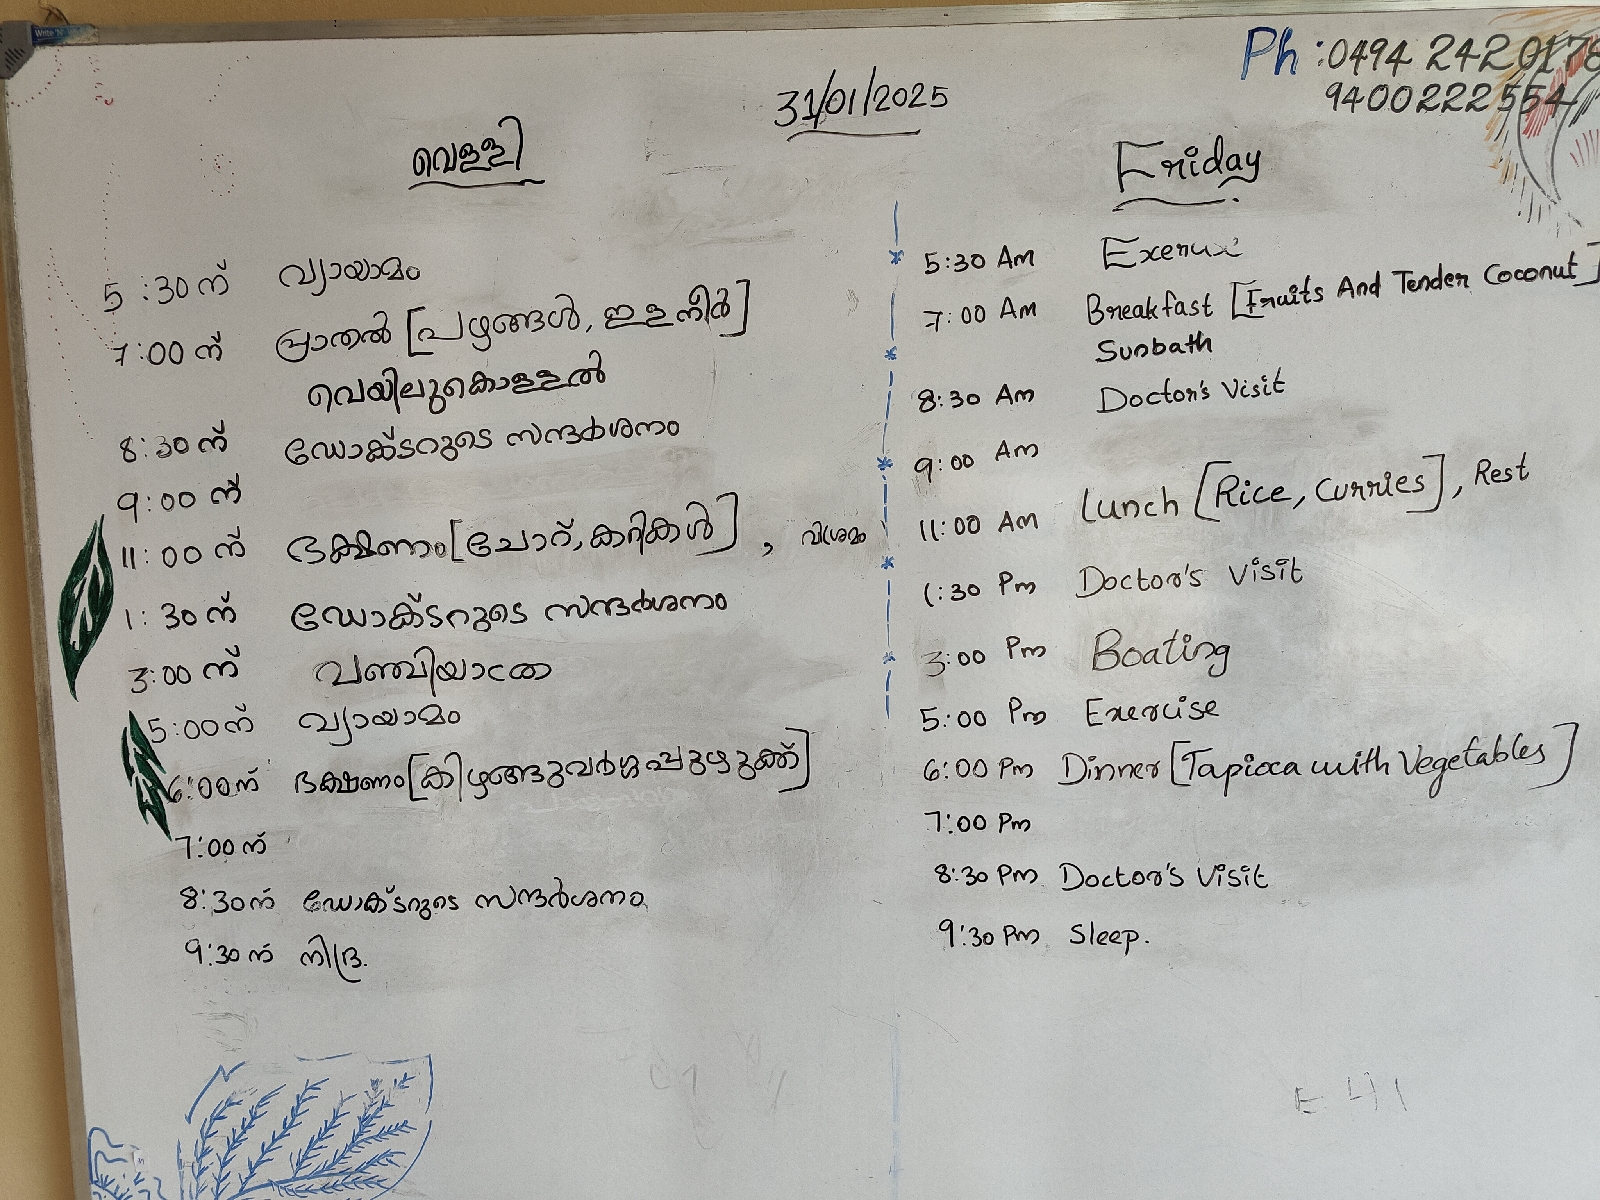 Ph : 0494 2420178
9400222554
31/01/2025
വെള്ളി
5:30ന് വ്യായാമം
7:00ന് പ്രാതൽ [പഴങ്ങൾ, ഇളനീർ]
വെയിലുകൊള്ളൽ
8:30ന് ഡോക്ടറുടെ സന്ദർശനം
9:00ന്
11:00ന് ഭക്ഷണം [ചോറ്, കറികൾ], വിശ്രമം
1:30ന് ഡോക്ടറുടെ സന്ദർശനം
3:00ന് വഞ്ചിയാത്ര
5:00ന് വ്യായാമം
6:00ന് ഭക്ഷണം [കിഴങ്ങുവർഗ്ഗപ്പുഴുക്ക്]
7:00ന്
8:30ന് ഡോക്ടറുടെ സന്ദർശനം
9:30ന് നിദ്ര.
Friday
5:30 Am Exercise
7:00 Am Breakfast [Fruits And Tender Coconut]
Sunbath
8:30 Am Doctor's Visit
9:00 Am
11:00 Am Lunch [Rice, Curries], Rest
1:30 Pm Doctor's Visit
3:00 Pm Boating
5:00 Pm Exercise
6:00 Pm Dinner [Tapioca with Vegetables]
7:00 Pm
8:30 Pm Doctor's Visit
9:30 Pm Sleep.